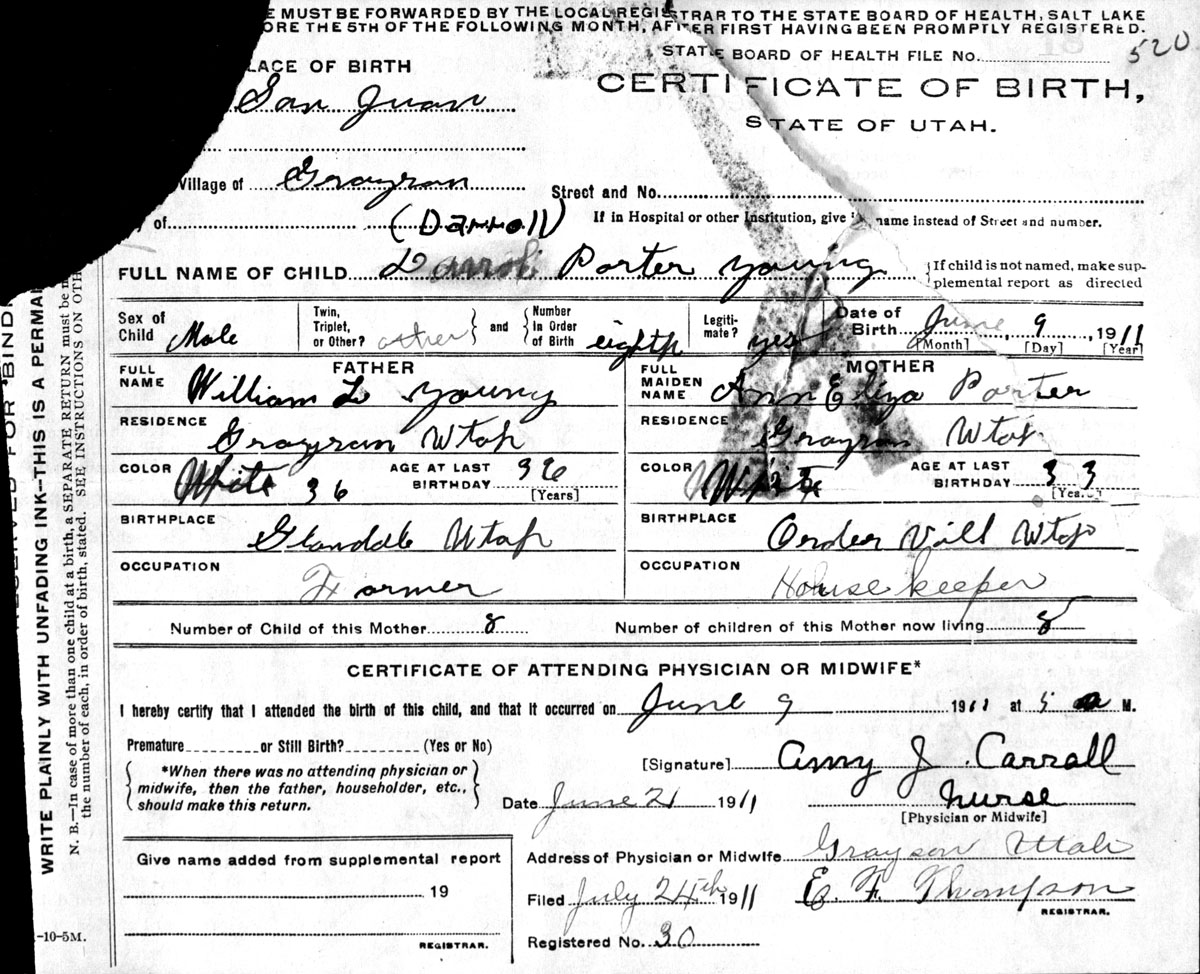 E MUST BE FORWARDED BY THE LOCAL REGISTRAR TO THE STATE BOARD OF HEALTH, SALT LAKE
ORE THE 5TH OF THE FOLLOWING MONTH, AFTER FIRST HAVING BEEN PROMPTLY REGISTERED.
STATE BOARD OF HEALTH FILE NO. 520
LACE OF BIRTH
CERTIFICATE OF BIRTH,
San Juan
STATE OF UTAH.
Village of Grayson
Street and No.
y of (Darroll)
If in Hospital or other Institution, give name instead of Street and number.
FULL NAME OF CHILD Darrol Porter Young
{If child is not named, make sup-
plemental report as directed
Sex of Child Male
Twin, Triplet, or Other? other } and { Number in Order of Birth eighth
Legiti-mate? yes
Date of Birth June 9, 1911
[Month] [Day] [Year]
FATHER
FULL NAME William L Young
RESIDENCE Grayson Utah
COLOR White 36 AGE AT LAST BIRTHDAY 36 [Years]
BIRTHPLACE Glandale Utah
OCCUPATION Farmer
MOTHER
FULL MAIDEN NAME Ann Eliza Porter
RESIDENCE Grayson Utah
COLOR White AGE AT LAST BIRTHDAY 33 [Years]
BIRTHPLACE Order Vill Utah
OCCUPATION House keeper
Number of Child of this Mother 8 Number of children of this Mother now living 8
CERTIFICATE OF ATTENDING PHYSICIAN OR MIDWIFE*
I hereby certify that I attended the birth of this child, and that it occurred on June 9 1911 at 5 a M.
Premature or Still Birth? (Yes or No)
{ *When there was no attending physician or
midwife, then the father, householder, etc.,
should make this return. }
[Signature] Amy J. Carrall
Date June 21 1911
Nurse
[Physician or Midwife]
Give name added from supplemental report
19
REGISTRAR.
Address of Physician or Midwife Grayson Utah
Filed July 24th 1911 E. F. Thompson
REGISTRAR.
Registered No. 30
-10-5M.
RESERVED FOR BINDI
WRITE PLAINLY WITH UNFADING INK—THIS IS A PERMAN
N. B.—In case of more than one child at a birth, a SEPARATE RETURN must be m
the number of each, in order of birth, stated. SEE INSTRUCTIONS ON OTHE